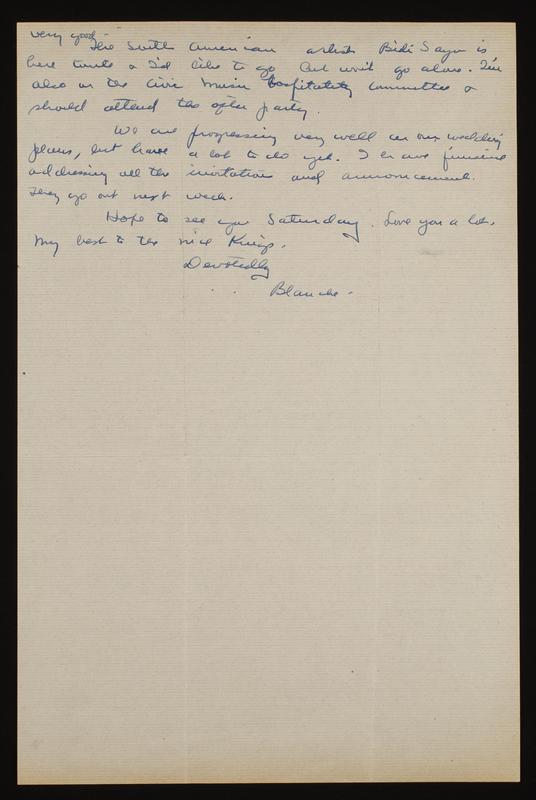 very good -
The South American artist Bidi Sayo is
here tonite & I'd like to go but won't go alone. I'm
also on the Civic Music Hospitality Committee &
should attend the after party.
We are progressing very well on our wedding
plans, but have a lot to do yet. I have finished
addressing all the invitations and announcement.
They go out next week.
Hope to see you Saturday. Love you a lot.
My best to the nice Kings.
Devotedly
Blanche -